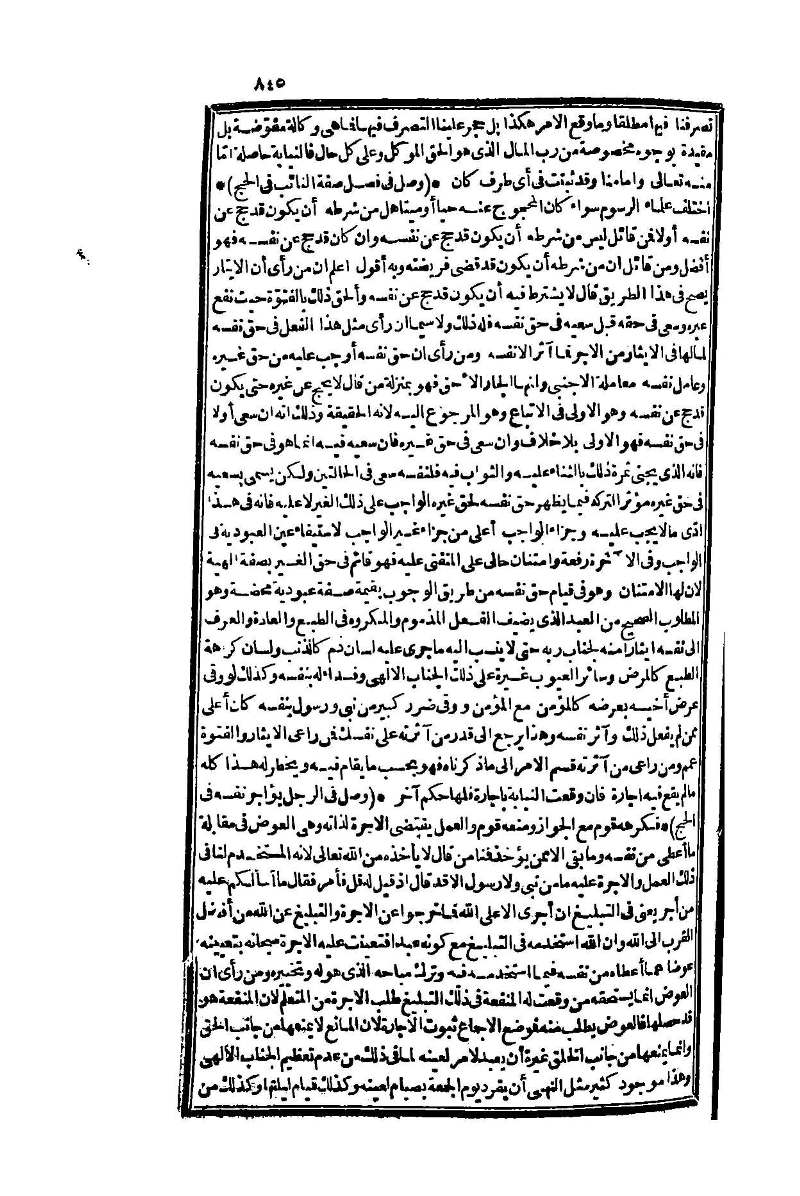 ٨٤٥
تصرفنا فيها مطلقا وما وقع الامر هكذا بل حجر علينا التصرف فيها فما هى وكالة مفوّضة بل
مقيدة بوجوه مخصوصة من رب المال الذى هو الحق الموكل وعلى كل حال فالنيابة حاصلة امّا
منه تعالى وامامنا وقد ثبتت فى أى طرف كان *(وصل فى فصل صفة النائب فى الحج)*
اختلف علماء الرسوم سواء كان المحجوج عنه حيا أو ميتا هل من شرطه أن يكون قد حج عن
نفسه أولا فمن قائل ليس من شرطه أن يكون قد حج عن نفسه وان كان قد حج عن نفسه فهو
أفضل ومن قائل ان من شرطه أن يكون قد قضى فريضته وبه أقول اعلم ان من رأى أن الايثار
يصح فى هذا الطريق قال لا يشترط فيه أن يكون قد حج عن نفسه وألحق ذلك بالفتوّة حيث نفع
غيره وسعى فى حقه قبل سعيه فى حق نفسه فله ذلك ولا سيما ان رأى مثل هذا الفعل فى حق نفسه
لما لها فى الايثار من الاجر فما آثر الا نفسه ومن رأى ان حق نفسه أوجب عليه من حق غيره
وعامل نفسه معاملة الاجنبى وانها الجار الاحق فهو بمنزلة من قال لا يحج عن غيره حتى يكون
قد حج عن نفسه وهو الاولى فى الاتباع وهو المرجوع اليه لانه الحقيقة وذلك انه ان سعى أولا
فى حق نفسه فهو الاولى بلا خلاف وان سعى فى حق غيره فان سعيه فيه انما هو فى حق نفسه
فانه الذى يجنى ثمرة ذلك بالثناء عليه والثواب فيه فلنفسه سعى فى الحالتين ولكن يسمى بسعيه
فى حق غيره مؤثر التركه فيما يظهر حق نفسه لحق غيره الواجب على ذلك الغير لا عليه فانه فى هذا
ادّى ما لا يجب عليه وجزاء الواجب أعلى من جزاء غير الواجب لاستيفاء عين العبودية فى
الواجب وفى الآخرة رفعة وامتنان حالى على المتفتى عليه فهو قائم فى حق الغير بصفة الهية
لان لها الامتنان وهو فى قيام حق نفسه من طريق الوجوب بقيمة صفة عبودية محضة وهو
المطلوب الصحيح من العبد الذى يضيف الفعل المذموم والمكروه فى الطبع والعادة والعرف
الى نفسه ايثارا منه لجناب ربه حتى لا ينسب اليه ما جرى عليه لسان ذم كالذنب ولسان كراهة
الطبع كالمرض وسائر العيوب غيرة على ذلك الجناب الالهى وفداء له بنفسه وكذلك لو وقى
عرض أخيه بعرضه كالمؤمن مع المؤمن ووقى ضرر كبير من نبى ورسول بنفسه كان أعلى
ممن لم يفعل ذلك وآثر نفسه وهذا يرجع الى قدر من آثرته على نفسك فمن راعى الايثار والفتوة
عمم ومن راعى من آثرته قسم الامر الى ما ذكرناه فهو بحسب ما يقام فيه ويخطر له هذا كله
ما لم يقع فيه اجارة فان وقعت النيابة باجارة فلها حكم آخر *(وصل فى الرجل يؤاجر نفسه فى
الحج)* فكرهه قوم مع الجواز ومنعه قوم والعمل يقتضى الاجرة لذاته وهى العوض فى مقابلة
ما أعطى من نفسه وما بقى الا ممن يؤخذ فمنا من قال لا يأخذه من الله تعالى لانه المستخدم لنا فى
ذلك العمل والاجرة عليه ما من نبى ولا رسول الا قد قال اذ قيل له قل فأمر فقال ما أسألكم عليه
من أجر يعنى فى التبليغ ان أجرى الا على الله فما خرجوا عن الاجرة والتبليغ عن الله من أفضل
القرب الى الله وان الله استخدمه فى التبليغ مع كونه عبدا فتعينت عليه الاجرة سبحانه بتعيينه
عوضا مما أعطاه من نفسه فيما استخدمه فيه وترك مباحه الذى هو له وتخييره ومن رأى ان
العوض انما يستحقه من وقعت له المنفعة فى ذلك التبليغ طلب الاجرة من المتعلم لان المنفعة هو
قد حصلها فالعوض يطلب منه فوضع الاجماع ثبوت الاجارة لان المانع لا يمنعها من جانب الحق
وانما يمنعها من جانب الخلق غيرة أن يعبد لامر لعينه لما فى ذلك من عدم تعظيم الجناب الالهى
وهذا موجود كثير مثل النهى أن يفرد يوم الجمعة بصيام لعينه وكذلك قيام ليلتها وكذلك من